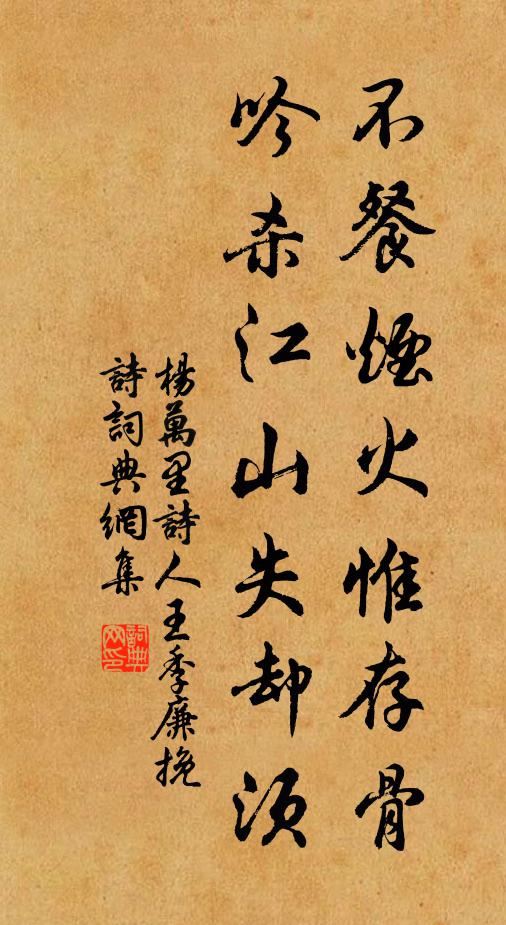 不餐煙火惟存骨
吟杀江山失却須
楊萬里詩人王季廉挽
詩詞典網集
詞典网印